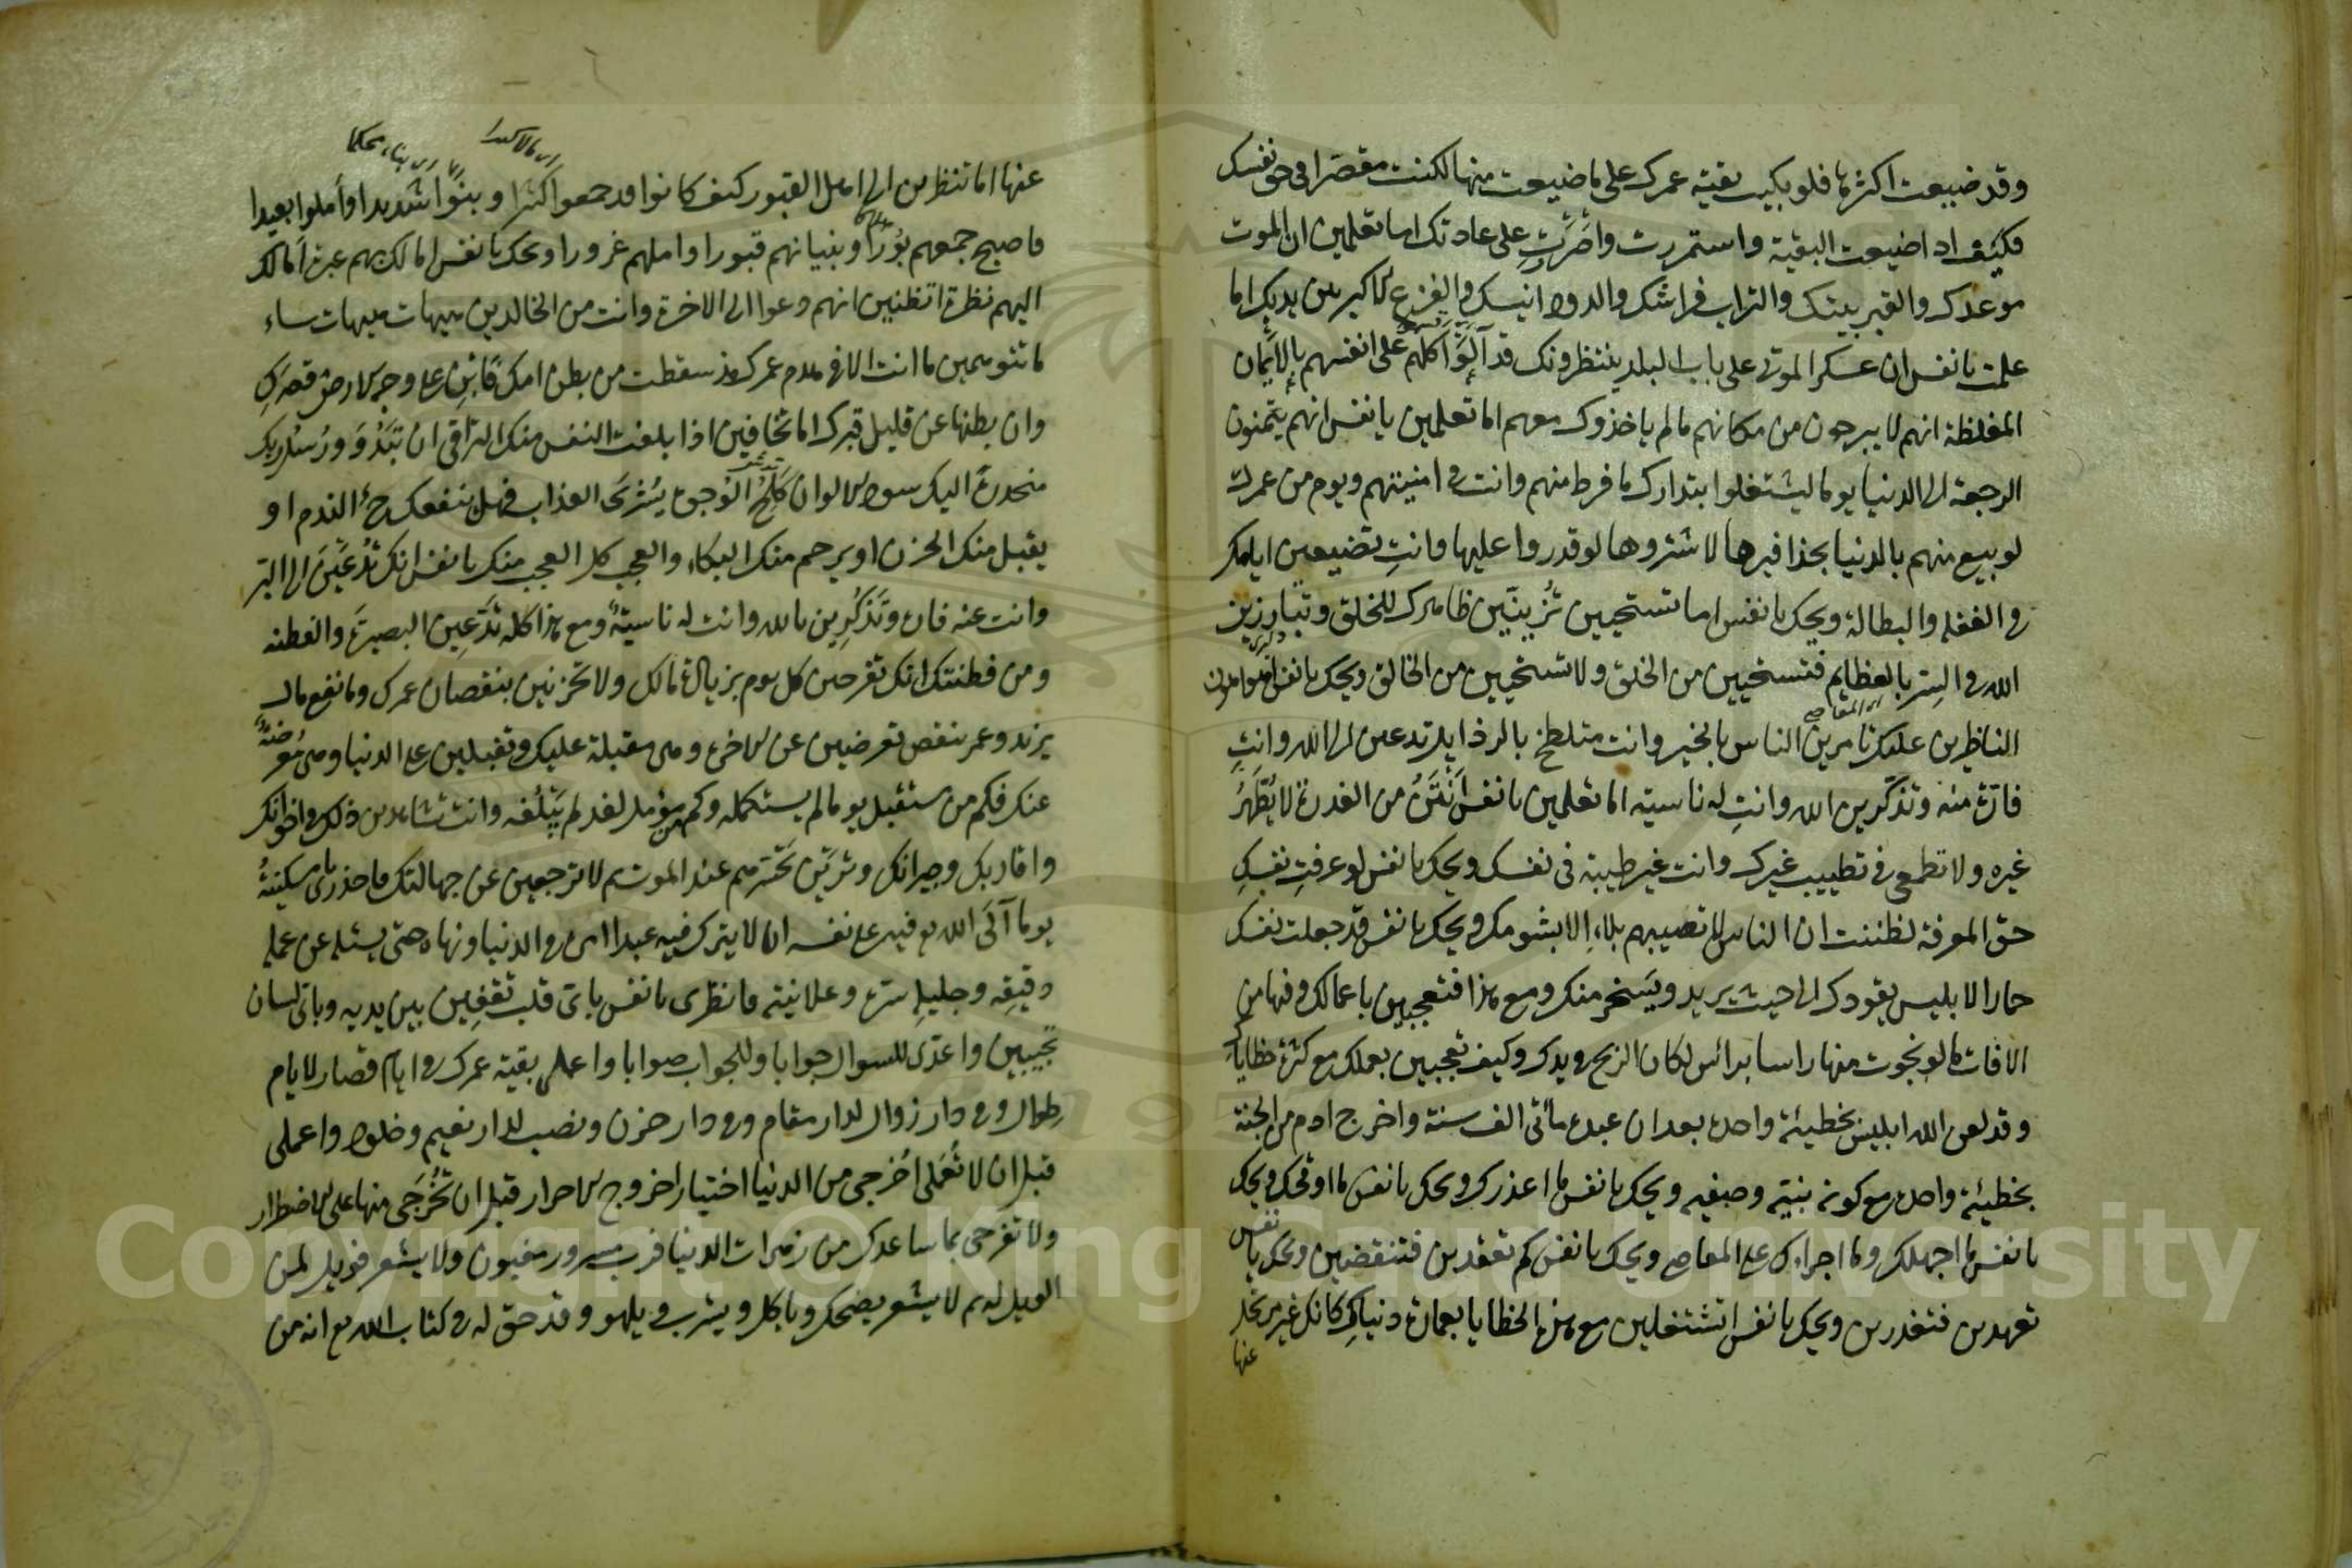 وقد ضيعت اكثرها فلو بكيت بقية عمرك على ما ضيعت منها لكنت مقصرا في حق نفسك
فكيف اذا ضيعت البقية واستمررت واصررت على عادتك اما تعلمين ان الموت
موعدك والقبر بيتك والتراب فراشك والدود انيسك والفزع الاكبر بين يديك اما
علمت يا نفس ان عسكر الموتى على باب البلد ينتظرونك قد آلوا كلهم على انفسهم بالايمان
المغلظة انهم لا يبرحون من مكانهم مالم ياخذوك معهم اما تعلمين يا نفس انهم يتمنون
الرجعة الى الدنيا يوما ليشتغلوا بتدارك ما فرط منهم وانت في امنيتهم ويوم من عمرك
لو بيع منهم بالدنيا بحذافيرها لاشتروها لو قدروا عليها وانت تضيعين ايامك
في الغفلة والبطالة ويحك يا نفس اما تستحيين تزينين ظاهرك للخلق وتبارزين
الله في السر بالعظايم فتستحيين من الخلق ولا تستحيين من الخالق ويحك يا نفس اهو اهون
الناظرين عليك تامرين الناس بالخير وانت متلطخ بالرذايل تدعين الى الله وانت
فارة منه وتذكرين الله وانت له ناسية اما تعلمين يا نفس انتن من العذرة لا يطهر
غيره ولا تطمعى في تطييب غيرك وانت غير طيبة في نفسك ويحك يا نفس لو عرفت نفسك
حق المعرفة لظننت ان الناس لا تصيبهم بلاء الا بشومك ويحك يا نفس قد جعلت نفسك
حمارا لابليس يقودك الى حيث يريد ويسخر منك ومع هذا فتعجبين باعمالك وفيها من
الافات ما لو نجوت منها راسا براس لكان الربح في يدك وكيف تعجبين بعملك مع كثرة خطاياك
وقد لعن الله ابليس بخطيئة واحدة بعد ان عبده مأتى الف سنة واخرج ادم من الجنة
بخطيئة واحدة مع كونه نبيه وصفيه ويحك يا نفس ما اعذرك ويحك يا نفس ما اوقحك ويحك
يا نفس ما اجهلك وما اجراءك على المعاصى ويحك يا نفس كم تعقدين فتنقضين ويحك يا نفس
تعهدين فتغدرين ويحك يا نفس اتشتغلين مع هذه الخطايا بعمارة دنياك كانك غير مرتحلة
عنها
عنها اما تنظرين الى اهل القبور كيف كانوا قد جمعوا كثيرا وبنوا شديدا واملوا بعيدا
فاصبح جمعهم بورا وبنيانهم قبورا واملهم غرورا ويحك يا نفس اما لك بهم عبرة اما لك
اليهم نظرة اتظنين انهم دعوا الى الاخرة وانت من الخالدين هيهات هيهات ساء
ما تتوهمين ما انت الا في هدم عمرك منذ سقطت من بطن امك فابن على وجه الارض قصرك
وان بطنها عن قليل قبرك اما تخافين اذا بلغت النفس منك التراقى ان تبدو رسل ربك
منحدرة اليك بسواد الالوان كلح الوجوه يبشرى العذاب فهل ينفعك ح الندم او
يقبل منك الحزن او يرحم منك البكاء والعجب كل العجب منك يا نفس انك تدعين الى البر
وانت عنه فارة وتذكرين بالله وانت له ناسية ومع هذا كله تدعين البصيرة والفطنه
ومن فطنتك انك تفرحين كل يوم بزيادة مالك ولا تحزنين بنقصان عمرك وما نفع مال
يزيد وعمر ينقص تعرضين عن الاخرة وهي مقبلة عليك وتقبلين على الدنيا وهي معرضة
عنك فكم من مستقبل يوما لم يستكمله وكم من مؤمل لغد لم يبلغه وانت تشاهدين ذلك في اخوانك
واقاربك وجيرانك وترين تحسرهم عند الموت ثم لا ترجعين عن جهالتك فاحذرى يا مسكينة
يوما آلى الله تع فيه على نفسه ان لا يترك فيه عبدا امره في الدنيا ونهاه حتى يسئله عن عمله
دقيقه وجليله سره وعلانيته فانظرى يا نفس باى قلب تقفين بين يديه وباى لسان
تجيبين واعدى للسوال جوابا وللجواب صوابا واعملى بقية عمرك في ايام قصار لايام
طوال وفي دار زوال لدار مقام وفي دار حزن ونصب لدار نعيم وخلود واعملى
قبل ان لا تعملى اخرجى من الدنيا اختيارا خروج الاحرار قبل ان تخرجى منها على الاضطرار
ولا تفرحى بما ساعدك من زهرات الدنيا فرب مسرور مغبون ولا يشعر فويل لمن
الويل له ثم لا يشعر يضحك وياكل ويشرب ويلهو وقد حق له في كتاب الله تع انه من
Copyright © King Saud University